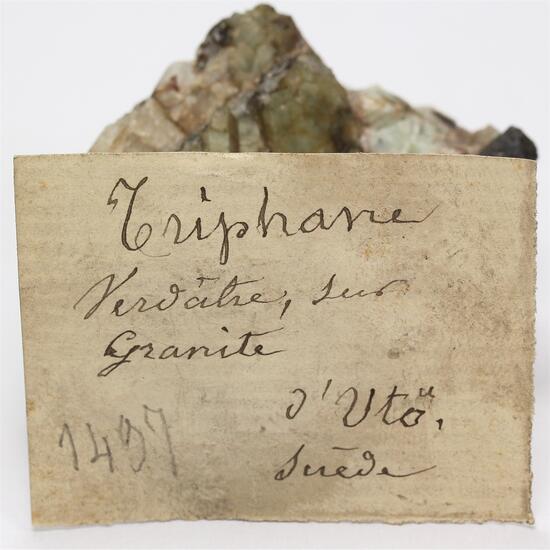 Triphane
Verdâtre, sur
Granite
d'Utö,
Suède
1437